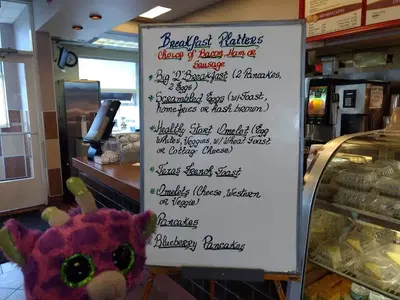 Breakfast Platters
Choice of Bacon, Ham or
Sausage
* Big "2" Breakfast (2 Pancakes,
2 Eggs)
* Scrambled Eggs (w/Toast,
homefries or hash brown)
* Healthy Start Omelet (Egg
Whites, Veggies, w/ Wheat Toast
or Cottage Cheese)
* Texas French Toast
* Omelets (Cheese, Western
or Veggie)
* Pancakes
* Blueberry Pancakes